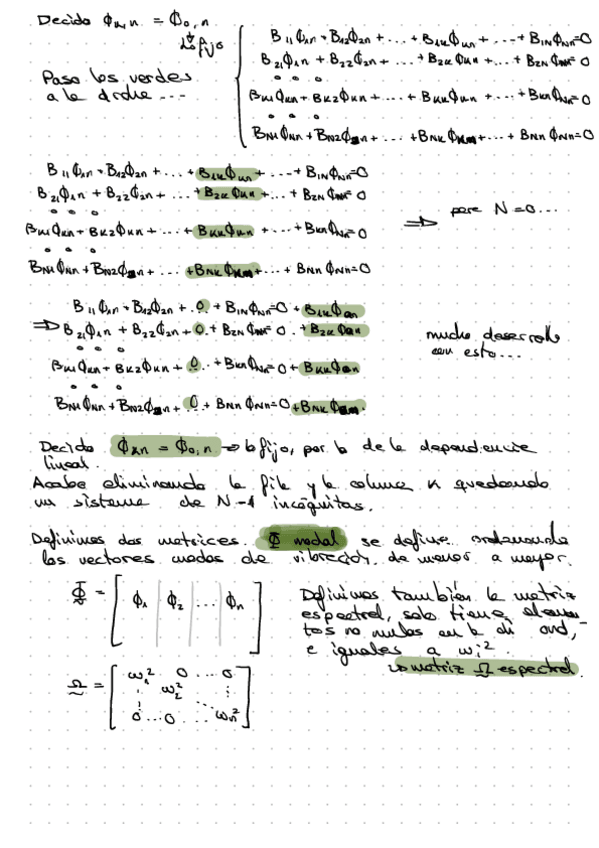 Decido ϕ_{k,n} = ϕ_{0,n}
lo fijo
B_{11}ϕ_{1n} + B_{12}ϕ_{2n} + ... + B_{1k}ϕ_{kn} + ... + B_{1N}ϕ_{Nn} = 0
B_{21}ϕ_{1n} + B_{22}ϕ_{2n} + ... + B_{2k}ϕ_{kn} + ... + B_{2N}ϕ_{Nn} = 0
Paso los verdes
a la drcha ...
B_{k1}ϕ_{kn} + B_{k2}ϕ_{kn} + ... + B_{kk}ϕ_{kn} + ... + B_{kn}ϕ_{Nn} = 0
B_{N1}ϕ_{Nn} + B_{N2}ϕ_{2n} + ... + B_{Nk}ϕ_{kn} + ... + B_{NN}ϕ_{Nn} = 0
B_{11}ϕ_{1n} + B_{12}ϕ_{2n} + ... + B_{1k}ϕ_{kn} + ... + B_{1N}ϕ_{Nn} = 0
B_{21}ϕ_{1n} + B_{22}ϕ_{2n} + ... + B_{2k}ϕ_{kn} + ... + B_{2N}ϕ_{Nn} = 0
⇒ para N=0...
B_{k1}ϕ_{kn} + B_{k2}ϕ_{kn} + ... + B_{kk}ϕ_{kn} + ... + B_{kn}ϕ_{Nn} = 0
B_{N1}ϕ_{Nn} + B_{N2}ϕ_{2n} + ... + B_{Nk}ϕ_{kn} + ... + B_{NN}ϕ_{Nn} = 0
B_{11}ϕ_{1n} + B_{12}ϕ_{2n} + .0. + B_{1N}ϕ_{Nn} = 0 + B_{1k}ϕ_{0n}
⇒ B_{21}ϕ_{1n} + B_{22}ϕ_{2n} + .0. + B_{2N}ϕ_{Nn} = 0 + B_{2k}ϕ_{0n}
mucho desarrollo
con esto...
B_{k1}ϕ_{kn} + B_{k2}ϕ_{kn} + .0. + B_{kn}ϕ_{Nn} = 0 + B_{kk}ϕ_{0n}
B_{N1}ϕ_{Nn} + B_{N2}ϕ_{2n} + .0. + B_{NN}ϕ_{Nn} = 0 + B_{Nk}ϕ_{0n}.
Decido ϕ_{kn} = ϕ_{0,n} → lo fijo, por lo de la dependencia
lineal.
Acabo eliminando la fila y la columna k quedando
un sistema de N-1 incógnitas.
Definimos dos matrices. Φ modal se define ordenando
los vectores modos de vibración, de menor a mayor.
Φ = [ϕ_1 | ϕ_2 | ... | ϕ_n]
Definimos también la matriz
espectral, solo tiene elemen-
tos no nulos en la di
e iguales a ω_i^2.
↳ matriz Ω espectral.
Ω = [ω_1^2 0 ... 0
⋮ ω_2^2 ⋮
0 ... 0 ... ω_n^2]